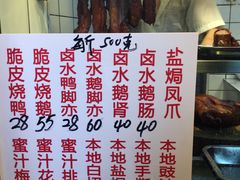 每斤 500克
脆皮烧鸭 28
脆皮烧鹅 55
卤水鸭脚亦 28
卤水鹅脚亦 60
卤水鹅肾 40
卤水鹅肠 40
盐焗凤爪
蜜汁梅
蜜汁花
蜜汁排
本地白
本地盐
本地手
本地豉